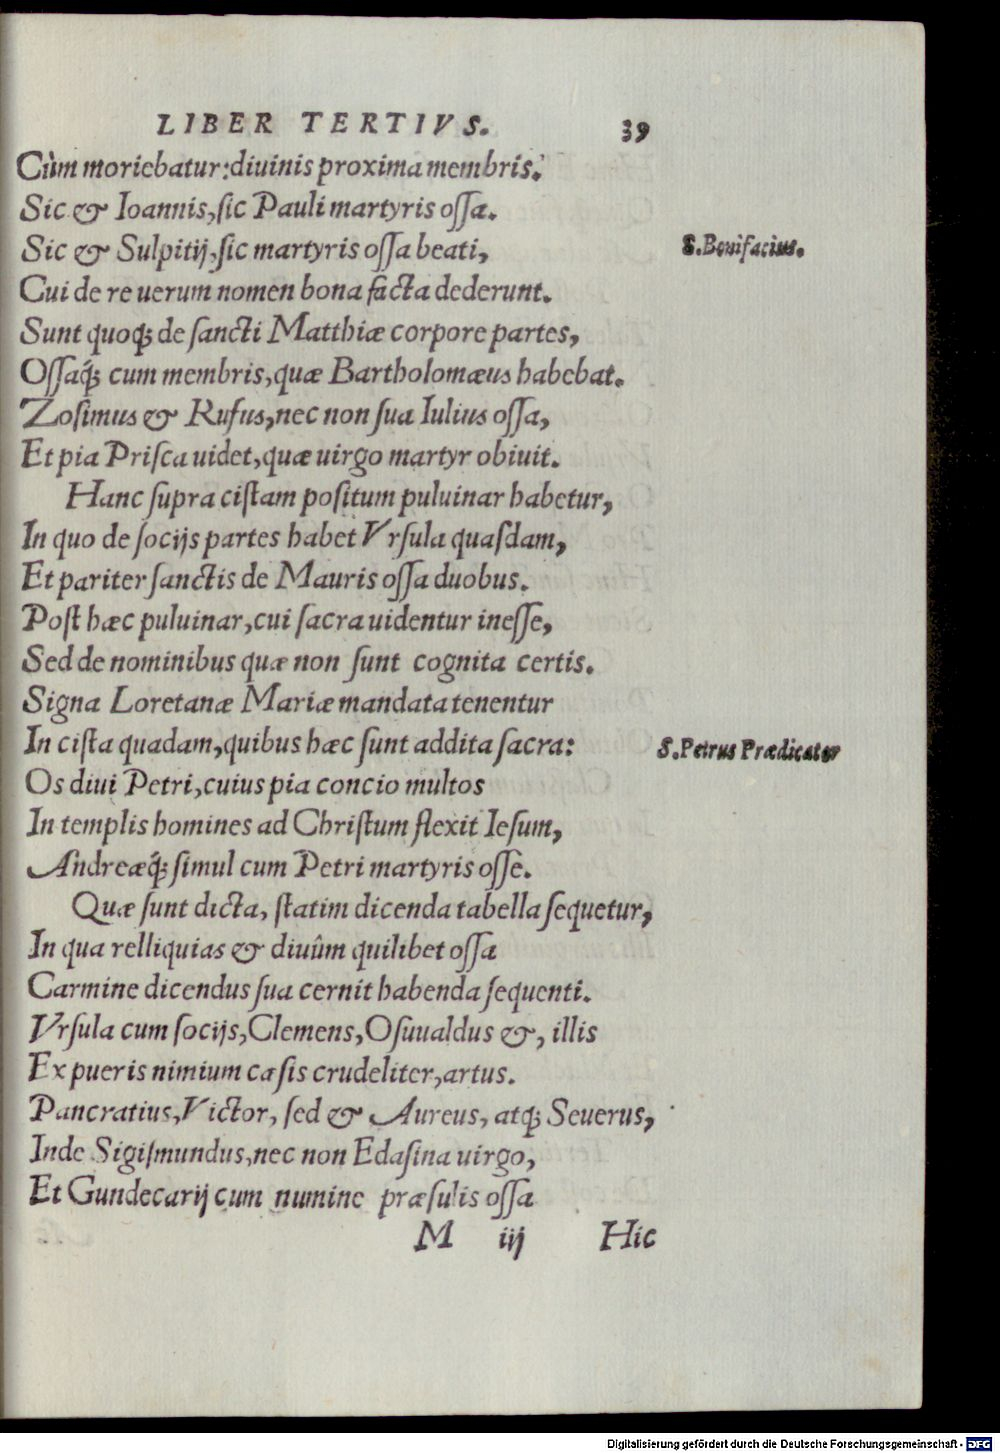 LIBER TERTIVS. 39
Cùm moriebatur: diuinis proxima membris.
Sic & Ioannis, sic Pauli martyris ossa.
Sic & Sulpitij, sic martyris ossa beati,
S. Bonifacius.
Cui de re uerum nomen bona facta dederunt.
Sunt quoq; de sancti Matthiæ corpore partes,
Ossaq́; cum membris, quæ Bartholomæus habebat.
Zosimus & Rufus, nec non sua Iulius ossa,
Et pia Prisca uidet, quæ uirgo martyr obiuit.
Hanc supra cistam positum puluinar habetur,
In quo de socijs partes habet Vrsula quasdam,
Et pariter sanctis de Mauris ossa duobus.
Post hæc puluinar, cui sacra uidentur inesse,
Sed de nominibus quæ non sunt cognita certis.
Signa Loretanæ Mariæ mandata tenentur
In cista quadam, quibus hæc sunt addita sacra:
S. Petrus Prædicator
Os diui Petri, cuius pia concio multos
In templis homines ad Christum flexit Iesum,
Andreæq́; simul cum Petri martyris osse.
Quæ sunt dicta, statim dicenda tabella sequetur,
In qua relliquias & diuûm quilibet ossa
Carmine dicendus sua cernit habenda sequenti.
Vrsula cum socijs, Clemens, Osuualdus &, illis
Ex pueris nimium cæsis crudeliter, artus.
Pancratius, Victor, sed & Aureus, atq; Seuerus,
Inde Sigismundus, nec non Edasina uirgo,
Et Gundecarij cum numine præsulis ossa
M iij Hic
Digitalisierung gefördert durch die Deutsche Forschungsgemeinschaft - DFG